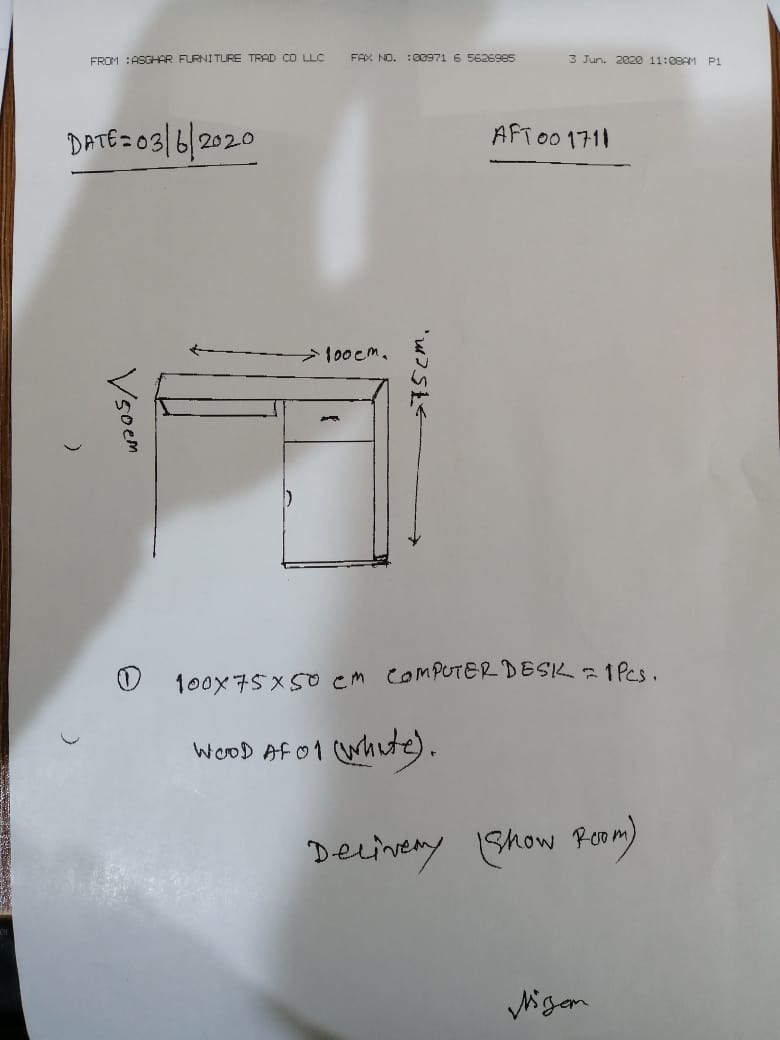 FROM :ASGHAR FURNITURE TRAD CO LLC FAX NO. :00971 6 5626985 3 Jun. 2020 11:08AM P1
DATE=03/6/2020 AFT001711
100cm.
75cm.
50cm
① 100X75X50 cm COMPUTER DESK = 1Pcs.
WOOD AF01 (White).
Delivery (Show Room)